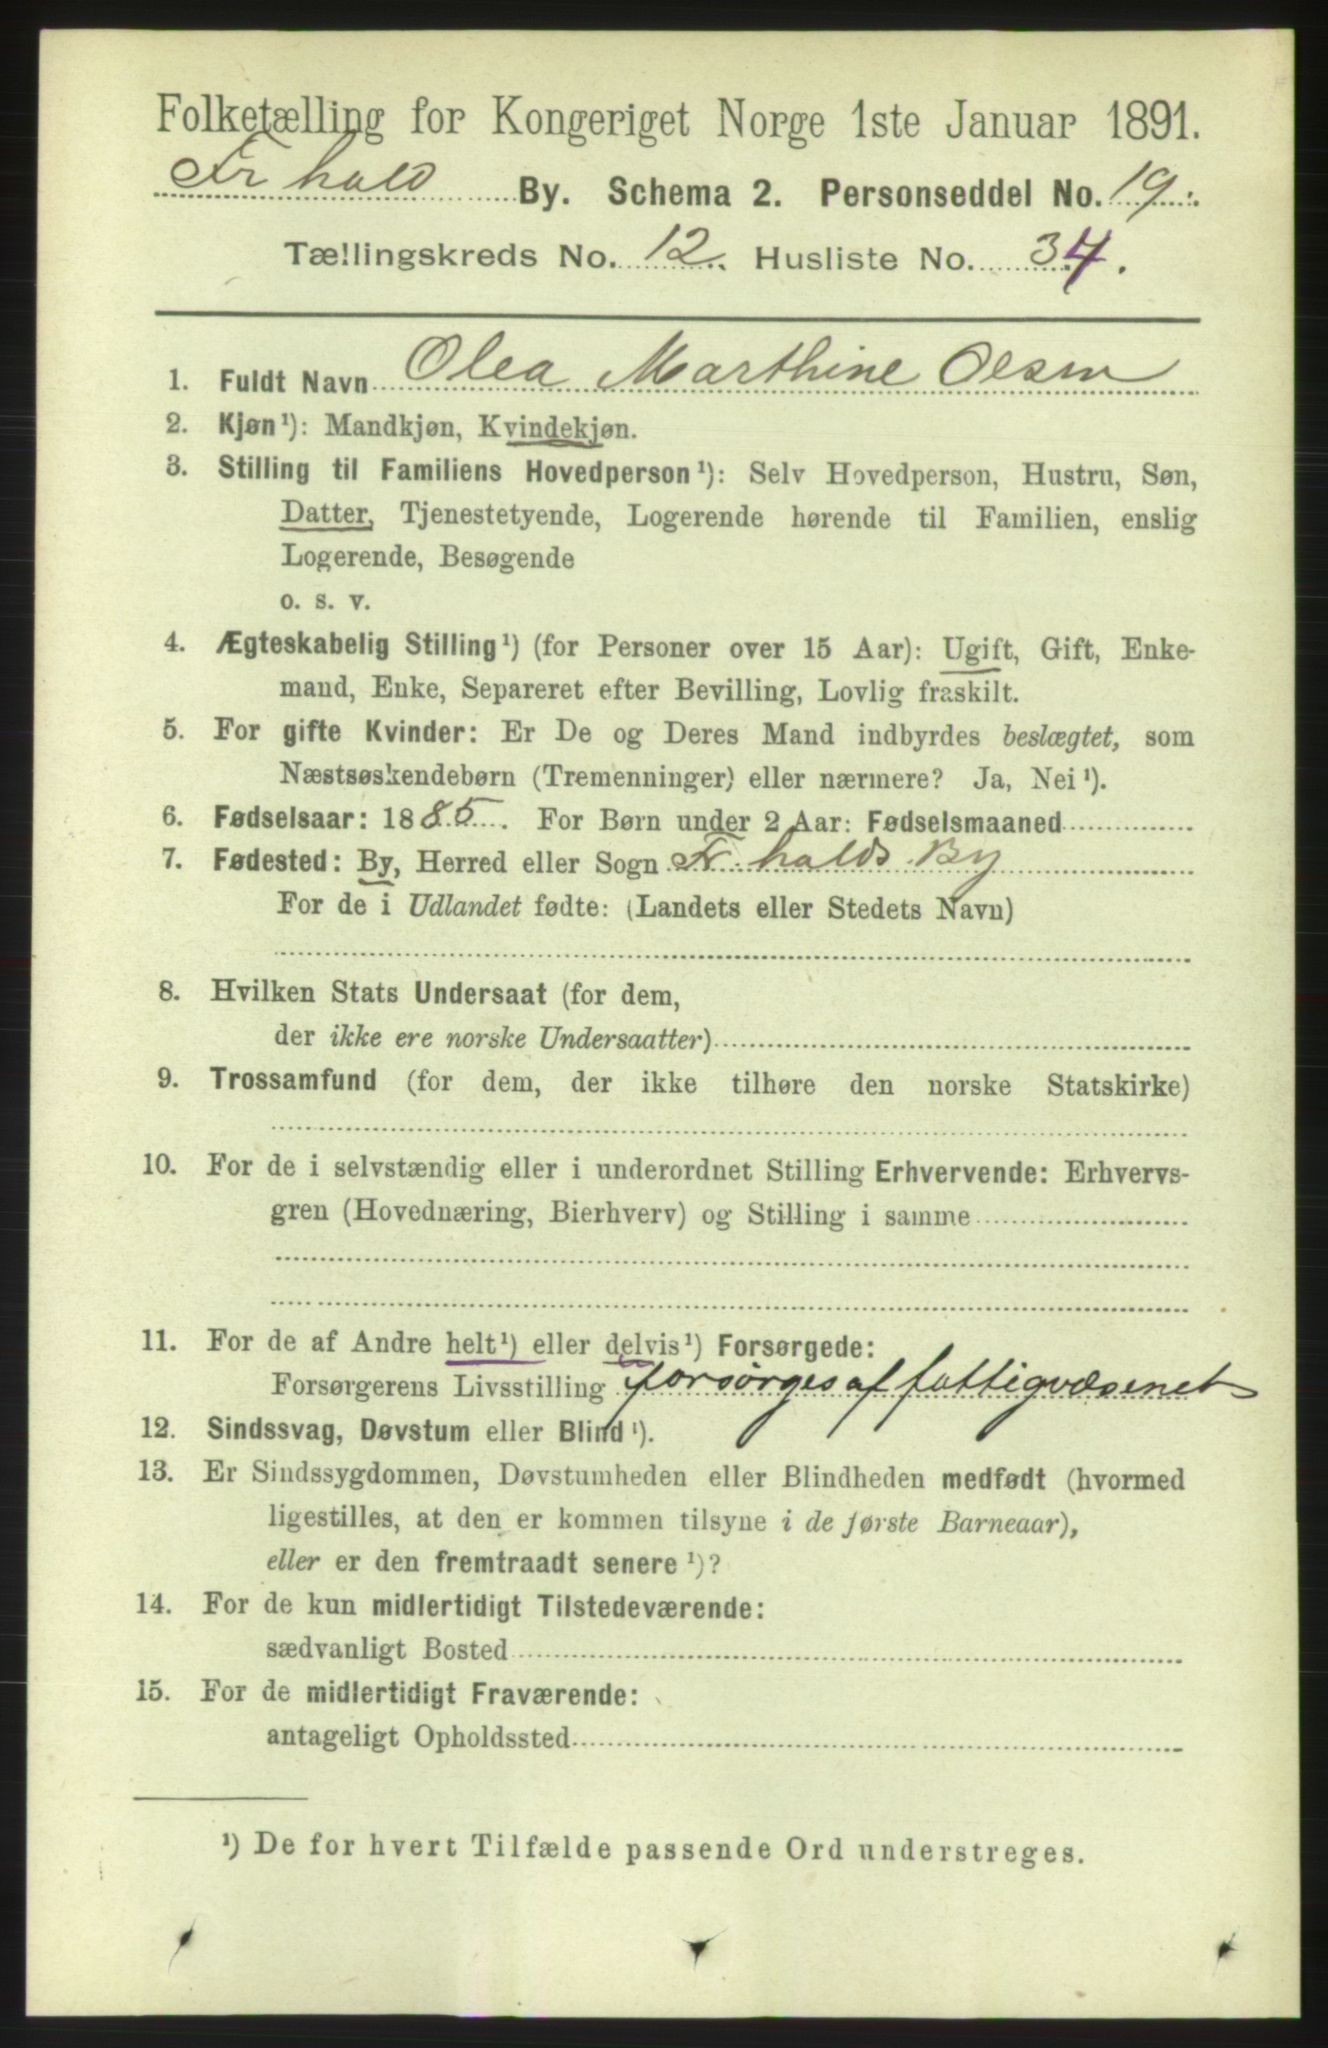 Folketælling for Kongeriget Norge 1ste Januar 1891.
Fr hald By. Schema 2. Personseddel No. 19.
Tællingskreds No. 12. Husliste No. 34.
1. Fuldt Navn Olea Marthine Olsen
2. Kjøn¹): Mandkjøn, Kvindekjøn.
3. Stilling til Familiens Hovedperson¹): Selv Hovedperson, Hustru, Søn,
Datter, Tjenestetyende, Logerende hørende til Familien, enslig
Logerende, Besøgende
o. s. v.
4. Ægteskabelig Stilling¹) (for Personer over 15 Aar): Ugift, Gift, Enke-
mand, Enke, Separeret efter Bevilling, Lovlig fraskilt.
5. For gifte Kvinder: Er De og Deres Mand indbyrdes beslægtet, som
Næstsøskendebørn (Tremenninger) eller nærmere? Ja, Nei¹).
6. Fødselsaar: 1885. For Børn under 2 Aar: Fødselsmaaned
7. Fødested: By, Herred eller Sogn Fr. halds By
For de i Udlandet fødte: (Landets eller Stedets Navn)
8. Hvilken Stats Undersaat (for dem,
der ikke ere norske Undersaatter)
9. Trossamfund (for dem, der ikke tilhøre den norske Statskirke)
10. For de i selvstændig eller i underordnet Stilling Erhvervende: Erhvervs-
gren (Hovednæring, Bierhverv) og Stilling i samme
11. For de af Andre helt¹) eller delvis¹) Forsørgede:
Forsørgerens Livsstilling forsørges af fattigvæsenet
12. Sindssvag, Døvstum eller Blind¹).
13. Er Sindssygdommen, Døvstumheden eller Blindheden medfødt (hvormed
ligestilles, at den er kommen tilsyne i de første Barneaar),
eller er den fremtraadt senere¹)?
14. For de kun midlertidigt Tilstedeværende:
sædvanligt Bosted
15. For de midlertidigt Fraværende:
antageligt Opholdssted
¹) De for hvert Tilfælde passende Ord understreges.